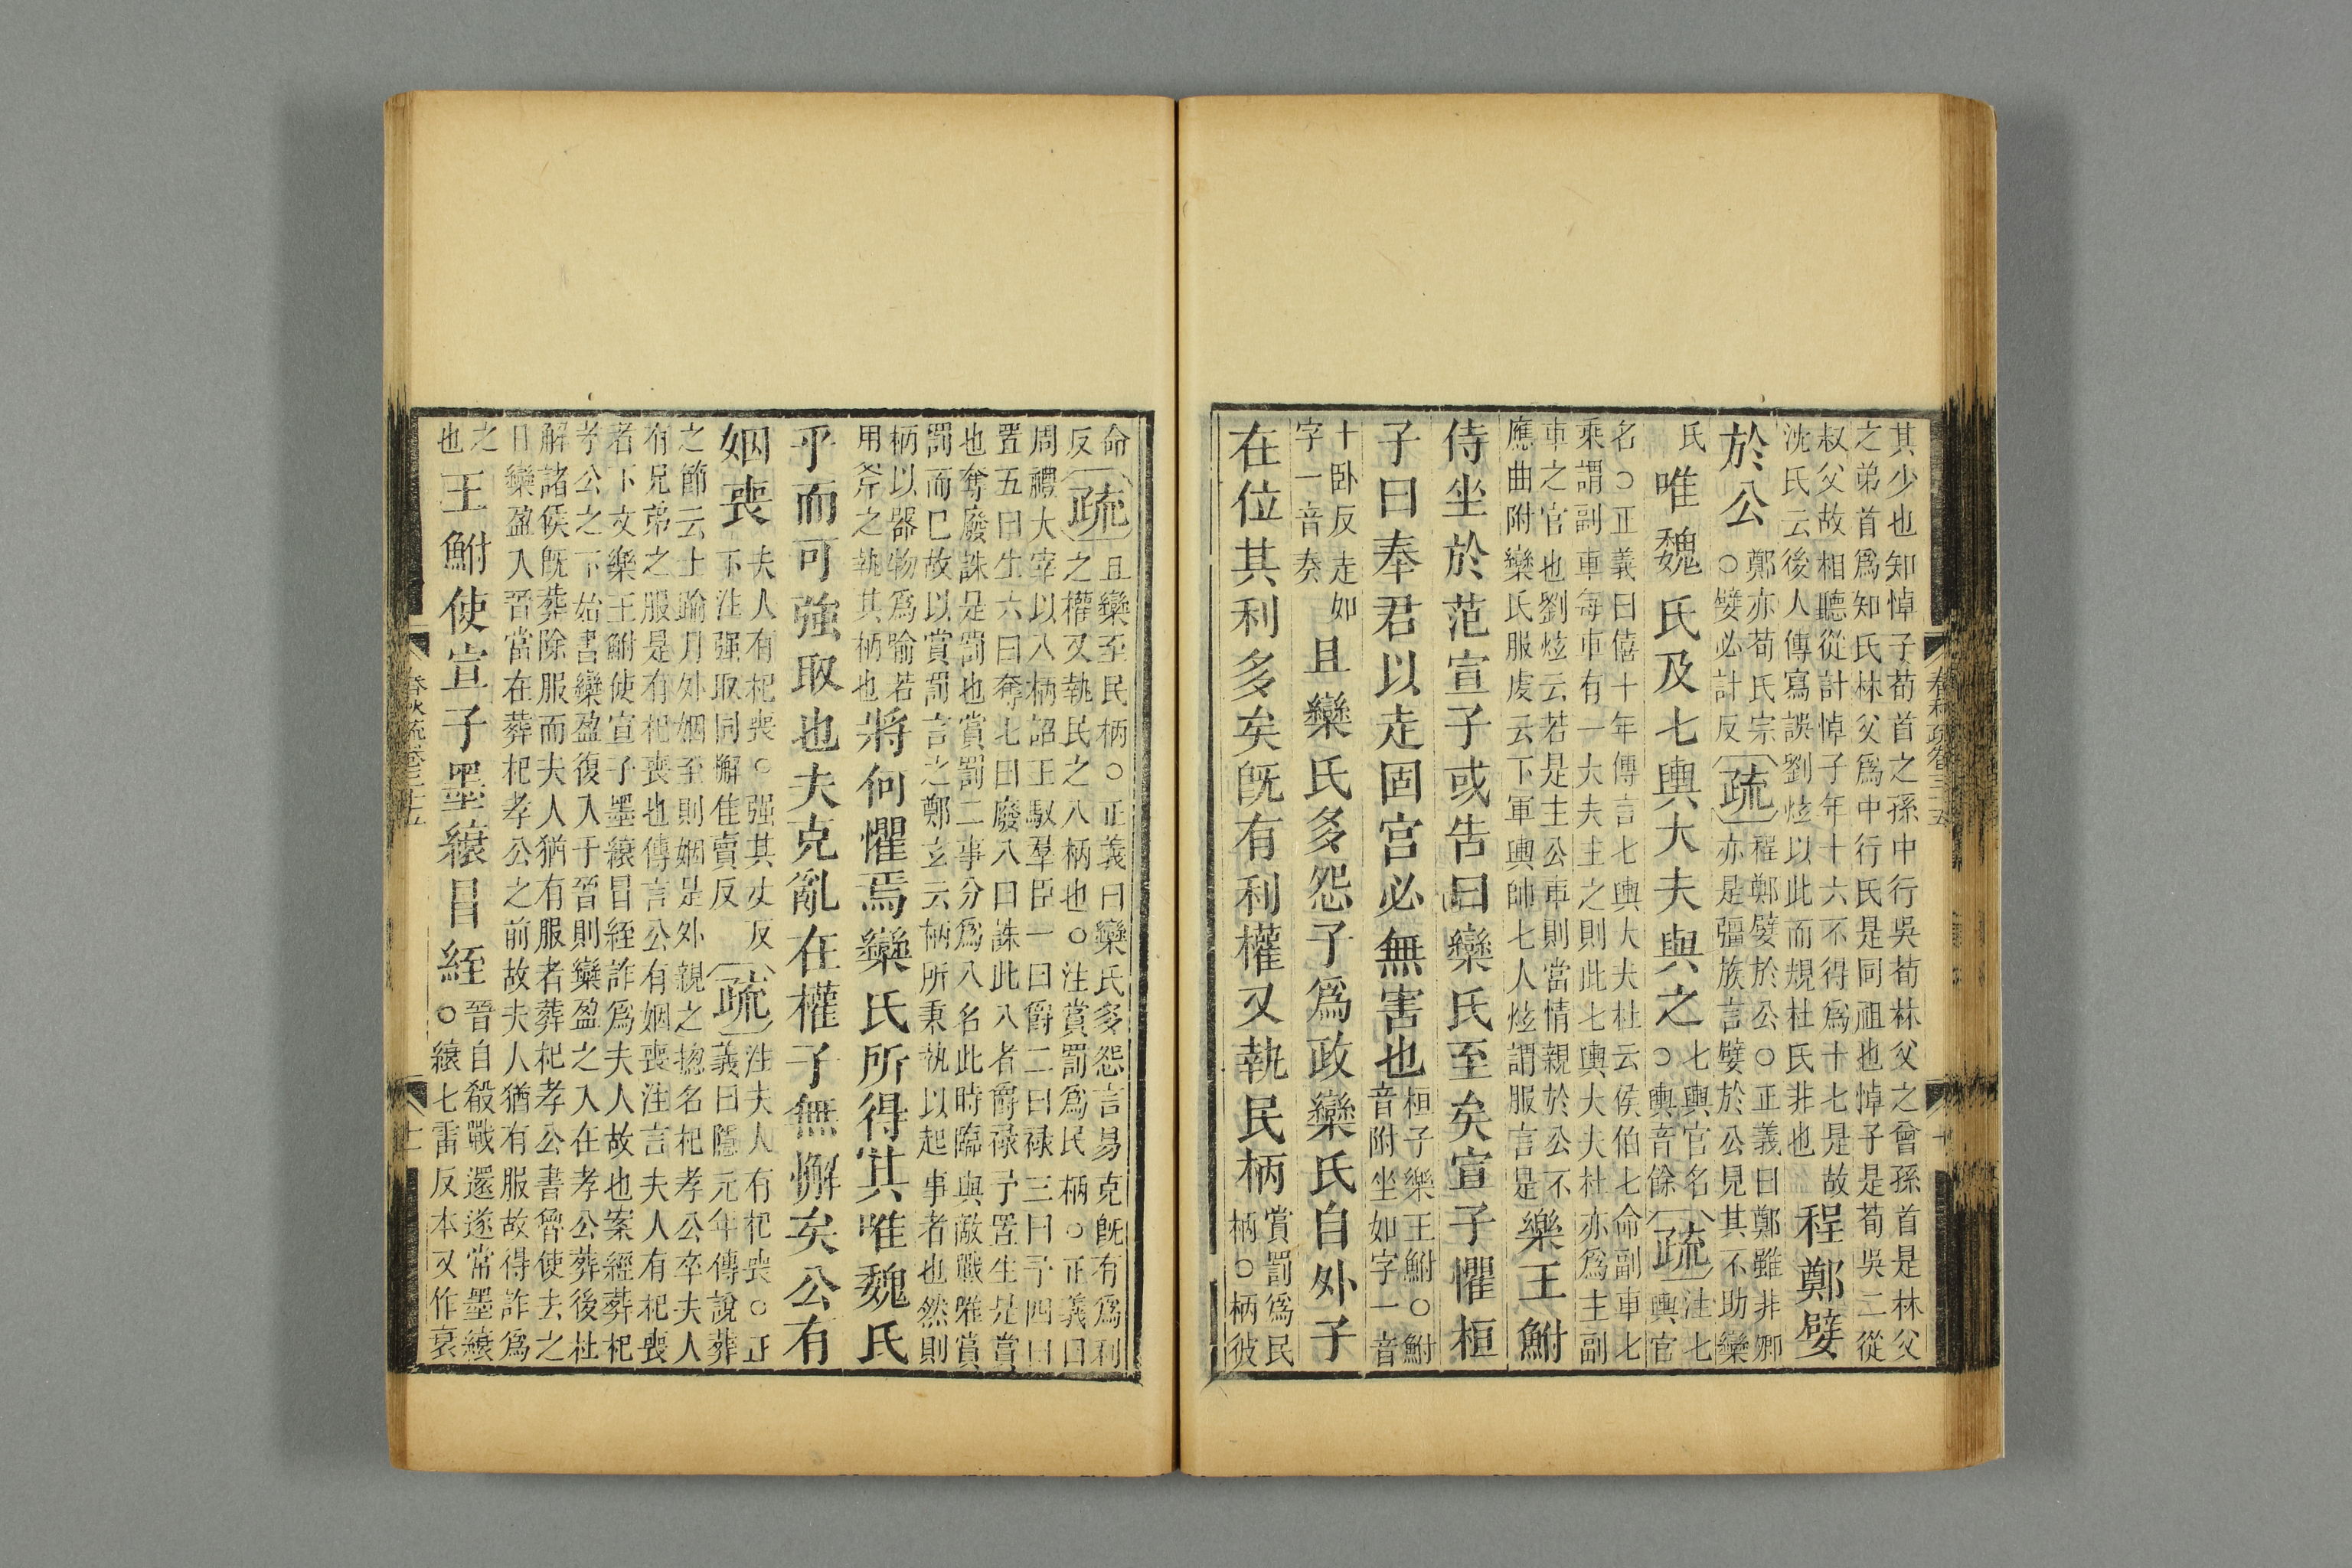 其少也知悼子荀首之孫中行吳荀林父之曾孫首是林父
之弟首爲知氏林父爲中行氏是同祖也悼子是荀吳二從
叔父故相聽從計悼子年十六不得爲十七是故
沈氏云後人傳寫誤劉炫以此而規杜氏非也
程鄭嬖
於公
鄭亦荀氏宗
○嬖必計反
疏
程鄭嬖於公○正義曰鄭雖非卿
亦是彊族言嬖於公見其不助欒
氏
唯魏氏及七輿大夫與之
七輿官名
○輿音餘
疏
注七
輿官
名○正義曰僖十年傳言七輿大夫杜云侯伯七命副車七
乘謂副車每車有一大夫主之則此七輿大夫杜亦爲主副
車之官也劉炫云若是主公車則當情親於公不
應曲附欒氏服虔云下軍輿帥七人炫謂服言是
樂王鮒
侍坐於范宣子或告曰欒氏至矣宣子懼桓
子曰奉君以走固宮必無害也
桓子樂王鮒○鮒
音附坐如字一音
十卧反走如
字一音奏
且欒氏多怨子爲政欒氏自外子
在位其利多矣旣有利權又執民柄
賞罰爲民
柄○柄彼
命
反
疏
且欒至民柄○正義曰欒氏多怨言易克旣有爲利
之權又執民之八柄也○注賞罰爲民柄○正義曰
周禮大宰以八柄詔王馭羣臣一曰爵二曰祿三曰予四曰
置五曰生六曰奪七曰廢八曰誅此八者爵祿予置生是賞
也奪廢誅是罰也賞罰二事分爲八名此時臨與敵戰唯賞
罰而巳故以賞罰言之鄭玄云柄所秉執以起事者也然則
柄以器物爲喻若
用斧之執其柄也
將何懼焉欒氏所得其唯魏氏
乎而可強取也夫克亂在權子無懈矣公有
姻喪
夫人有杞喪○强其丈反
下注强取同懈佳賣反
疏
注夫人有杞喪○正
義曰隱元年傳說葬
之節云士踰月外姻至則姻是外親之揔名杞孝公卒夫人
有兄弟之服是有杞喪也傳言公有姻喪注言夫人有杞喪
者下文樂王鮒使宣子墨縗冒絰詐爲夫人故也案經葬杞
孝公之下始書欒盈復入于晉則欒盈之入在孝公葬後杜
解諸侯旣葬除服而夫人猶有服者葬杞孝公書魯使去之
日欒盈入晉當在葬杞孝公之前故夫人猶有服故得詐爲
之
也
王鮒使宣子墨縗冒絰
晉自殽戰還遂常墨縗
○縗七雷反本又作衰